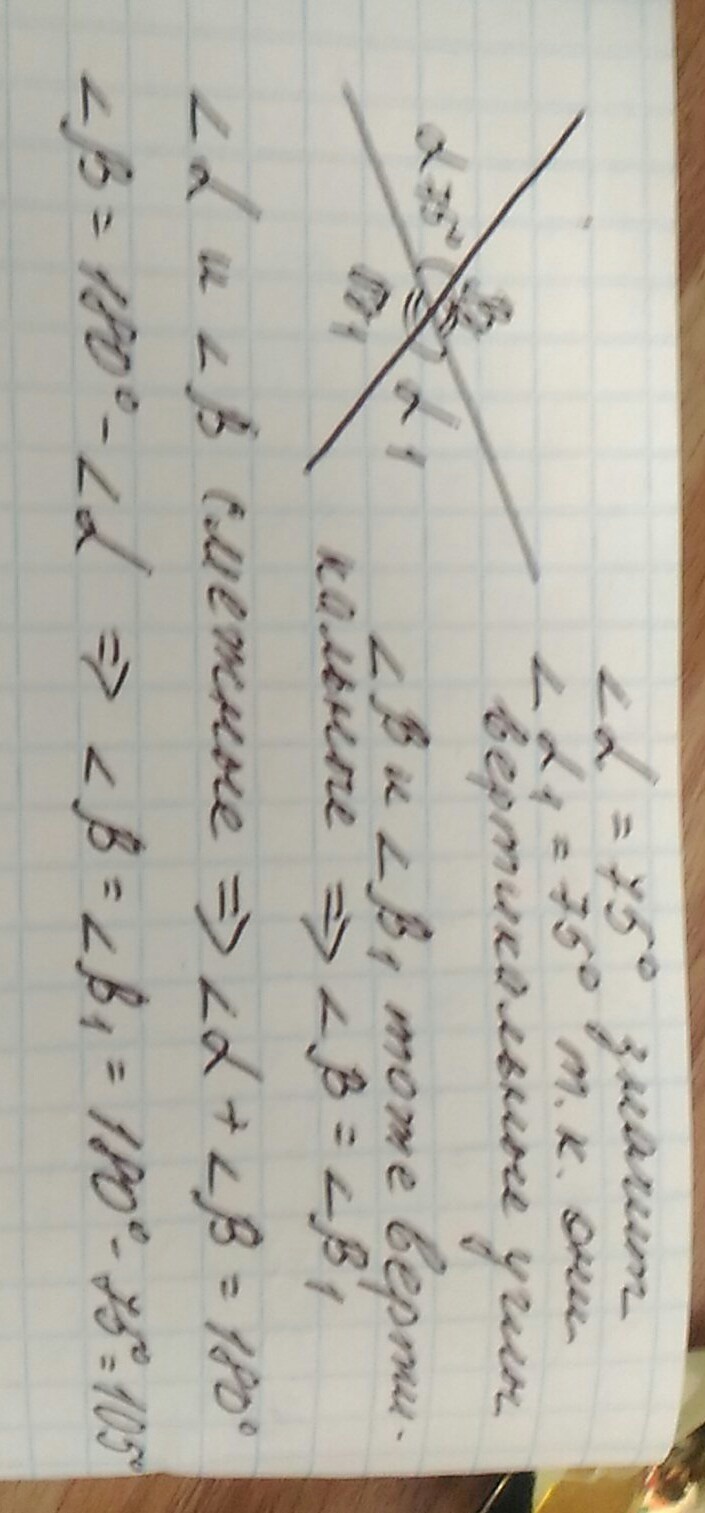 ∠α = 75° значит
∠α₁ = 75° т.к. они
вертикальные углы
α 75°
β
α₁
β₁
∠β и ∠β₁ тоже верти-
кальные ⇒ ∠β = ∠β₁
∠α и ∠β смежные ⇒ ∠α + ∠β = 180°
∠β = 180° - ∠α ⇒ ∠β = ∠β₁ = 180° - 75° = 105°